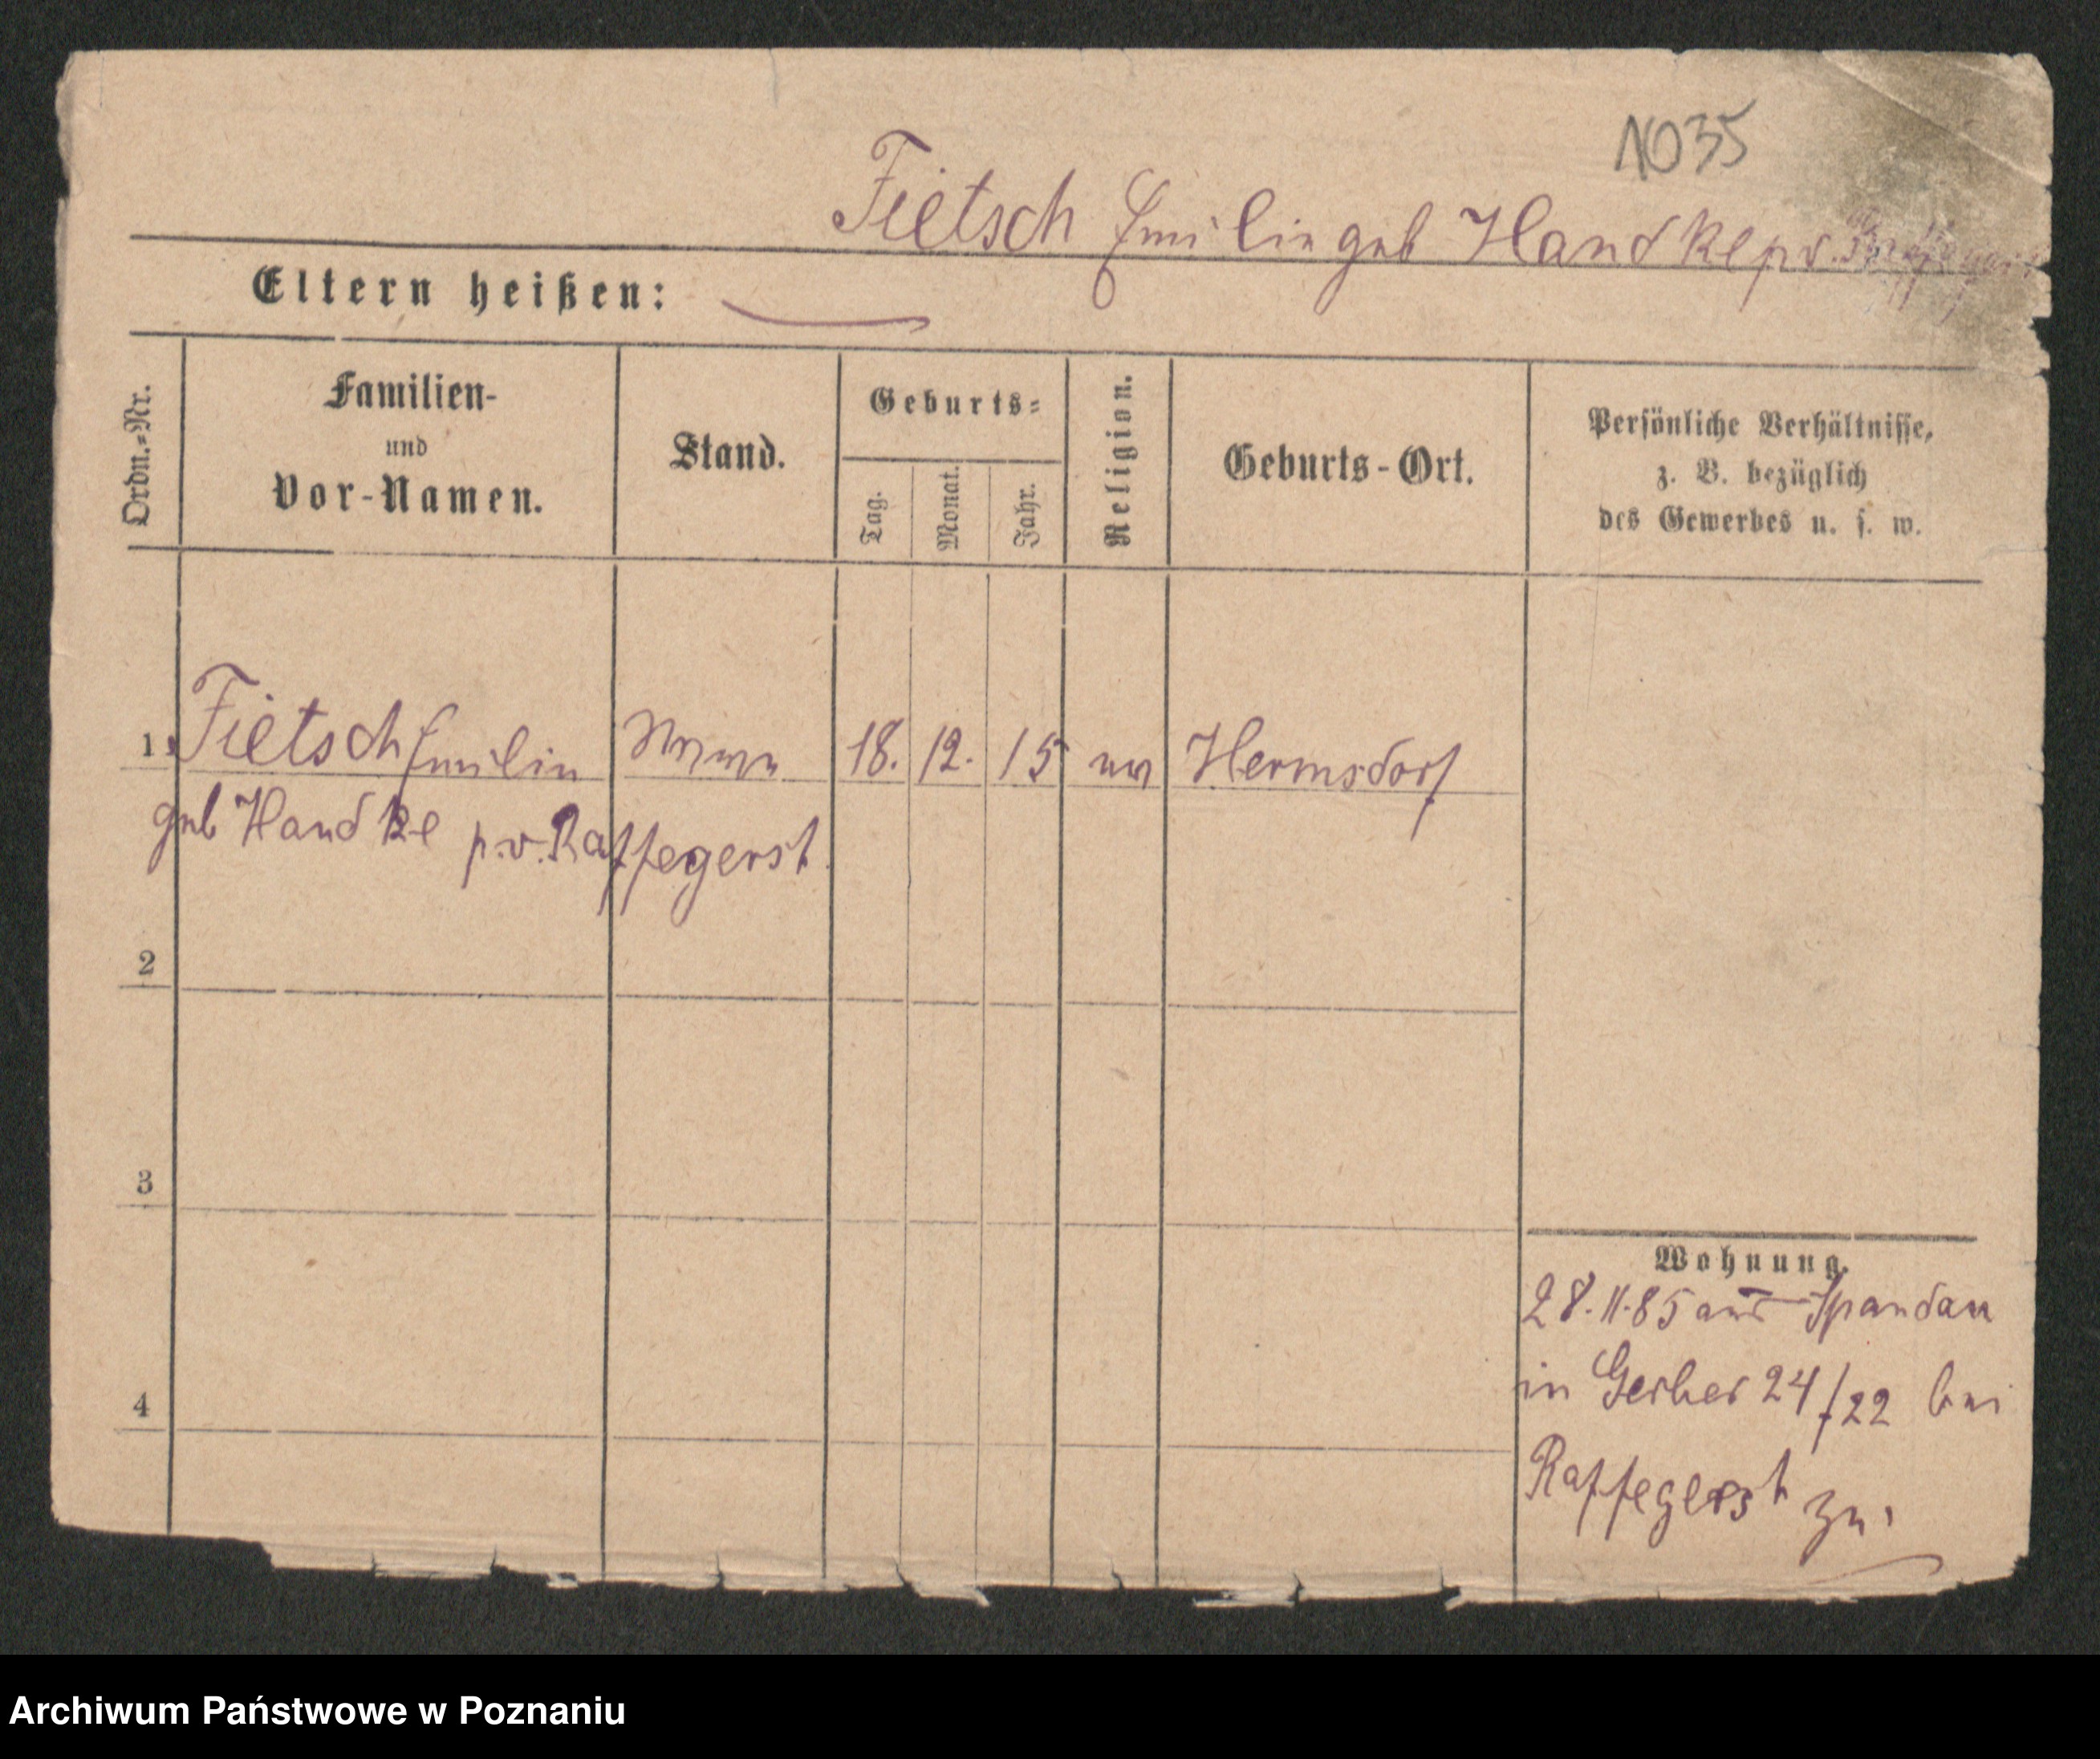 1035
Fietsch Emilie geb Handke p.v.
Eltern heißen:
Ordn.=Nr.
Familien-
und
Vor-Namen.
Stand.
Geburts=
Tag.
Monat.
Jahr.
Religion.
Geburts-Ort.
Persönliche Verhältnisse,
z. B. bezüglich
des Gewerbes u. s. w.
1 Fietsch Emilie 18. 12. 15 ev Hermsdorf
geb Handke p.v. Raffegerst.
2
3
4
Wohnung.
28.11.85 aus Spandau
in Gerber 24/22 bei
Raffegerst zu.
Archiwum Państwowe w Poznaniu